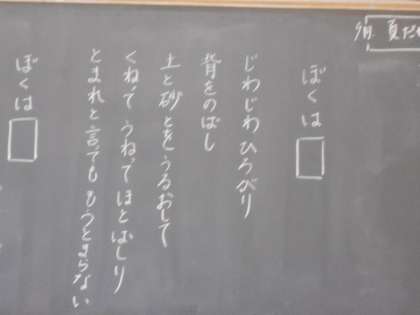 ぼくは□
じわじわひろがり
背をのばし
土と砂とをうるおして
くねってうねってほとばしり
とまれと言ってももうとまらない
ぼくは□